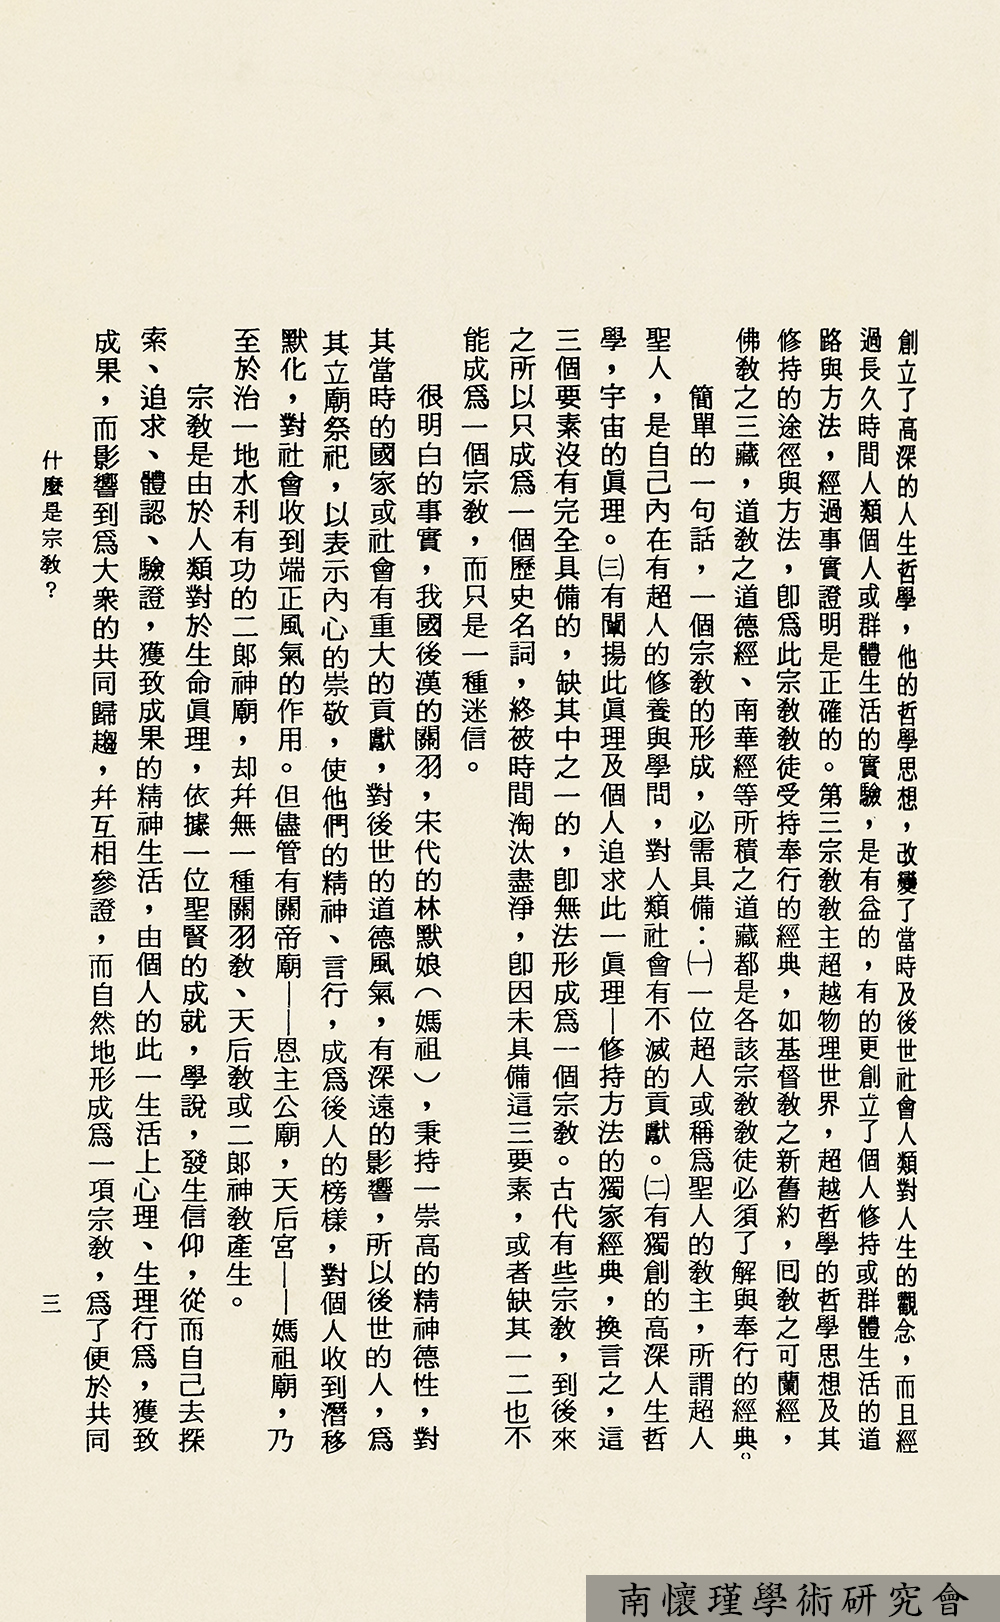 創立了高深的人生哲學，他的哲學思想，改變了當時及後世社會人類對人生的觀念，而且經
過長久時間人類個人或群體生活的實驗，是有益的，有的更創立了個人修持或群體生活的道
路與方法，經過事實證明是正確的。第三宗教教主超越物理世界，超越哲學的哲學思想及其
修持的途徑與方法，卽爲此宗教教徒受持奉行的經典，如基督教之新舊約，回教之可蘭經，
佛教之三藏，道教之道德經、南華經等所積之道藏都是各該宗教教徒必須了解與奉行的經典。
簡單的一句話，一個宗教的形成，必需具備：㈠一位超人或稱爲聖人的教主，所謂超人
聖人，是自己內在有超人的修養與學問，對人類社會有不滅的貢獻。㈡有獨創的高深人生哲
學，宇宙的眞理。㈢有闡揚此眞理及個人追求此一眞理—修持方法的獨家經典，換言之，這
三個要素沒有完全具備的，缺其中之一的，卽無法形成爲一個宗教。古代有些宗教，到後來
之所以只成爲一個歷史名詞，終被時間淘汰盡淨，卽因未具備這三要素，或者缺其一二也不
能成爲一個宗教，而只是一種迷信。
很明白的事實，我國後漢的關羽，宋代的林默娘（媽祖），秉持一崇高的精神德性，對
其當時的國家或社會有重大的貢獻，對後世的道德風氣，有深遠的影響，所以後世的人，爲
其立廟祭祀，以表示內心的崇敬，使他們的精神、言行，成爲後人的榜樣，對個人收到潛移
默化，對社會收到端正風氣的作用。但儘管有關帝廟——恩主公廟，天后宮——媽祖廟，乃
至於治一地水利有功的二郎神廟，却幷無一種關羽教、天后教或二郎神教產生。
宗教是由於人類對於生命眞理，依據一位聖賢的成就，學說，發生信仰，從而自己去探
索、追求、體認、驗證，獲致成果的精神生活，由個人的此一生活上心理、生理行爲，獲致
成果，而影響到爲大衆的共同歸趨，幷互相參證，而自然地形成爲一項宗教，爲了便於共同
什麼是宗教？
三
南懷瑾學術研究會